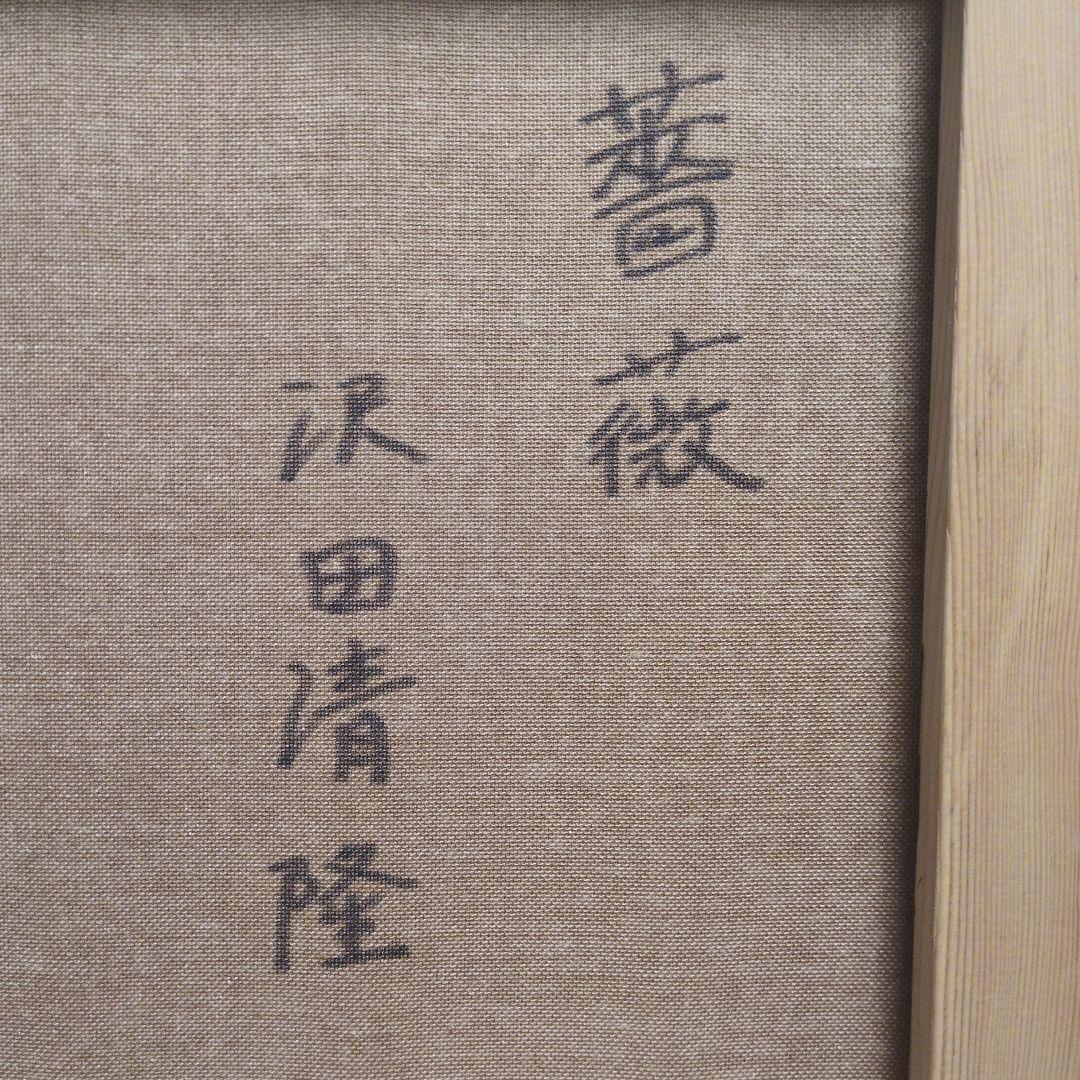 薔薇
沢田清隆